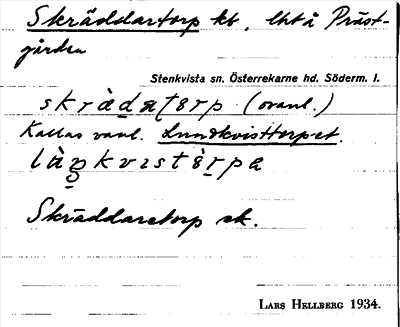 Skräddartorp kt, lht å Präst-
gården
Stenkvista sn. Österrekarne hd. Söderm. l.
skrädat̤ɛrp (ovanl.)
Kallas vanl. Lundkvisttorpet.
kvɪstɛ̀rpa
Skräddaretorp ek.
LARS HELLBERG 1934.